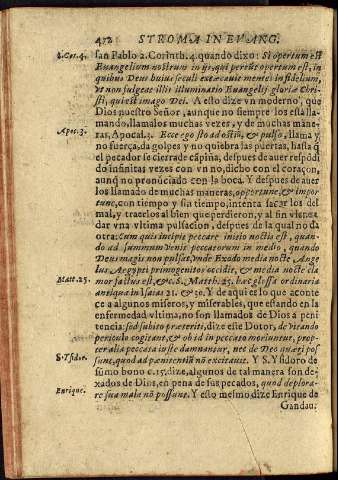 452 STROMA IN EVANG.
2.Cor.4. san Pablo 2. Corinth. 4. quando dixo: Si opertum est
Euangelium nostrum in ijs, qui pereũt opertum est, in
quibus Deus huius seculi excæcauit mentes infidelium,
vt non fulgeat illis illuminatio Euangelij gloriæ Chri
sti, qui est imago Dei. A esto dize vn moderno, que
Dios nuestro Señor, aunque no siempre los està lla-
mando, llamalos muchas vezes, y de muchas mane-
Apoc.3. ras, Apocal.3. Ecce ego sto ad ostiũ, & pulso, llama y
no fuerça, da golpes y no quiebra las puertas, hasta q̃
el pecador se cierra de
do infinitas vezes con vn no, dicho con el coraçon,
aunq̃ no pronũciado con la boca. Y despues de auer
los llamado de muchas maneras, opportune, & impor
tune, con tiempo y sin tiempo, intenta sacar los del
mal, y traerlos al bien que perdieron, y al fin
dar vna vltima pulsacion, despues de la qual no da
otra: Cum quis incipit peccare initio noctis est, quan-
do ad summum venit peccatorum in medio, quando
Deus magis non pulsat, vnde Exodo media nocte Ange
lus Aegypti primogenitos occidit, & media nocte cla
Matt.25. mor factus est, &c. S. Matth. 25. hæc glossa ordinaria
antiqua in Isaias 21. & 50. Y de aqui es lo que acont
ce a algunos miseros, y miserables, que estando en la
enfermedad vltima, no son llamados de Dios à peni
tencia: sed subito præteriti, dize este Dotor, de vitando
periculo cogitant, & ob id in peccato moriuntur, prop-
ter alia peccata iuste damnantur, nec de Deo quæri pos
S. Ysidor. sunt, quod ad pænitentiã nõ excitatur. Y S. Ysidoro de
sumo bono c.15. dize, algunos de tal manera son de-
xados de Dios, en pena de sus pecados, quod deplora-
Enrique. re sua mala nõ possunt. Y esto mesmo dize Enrique de
Gandau.